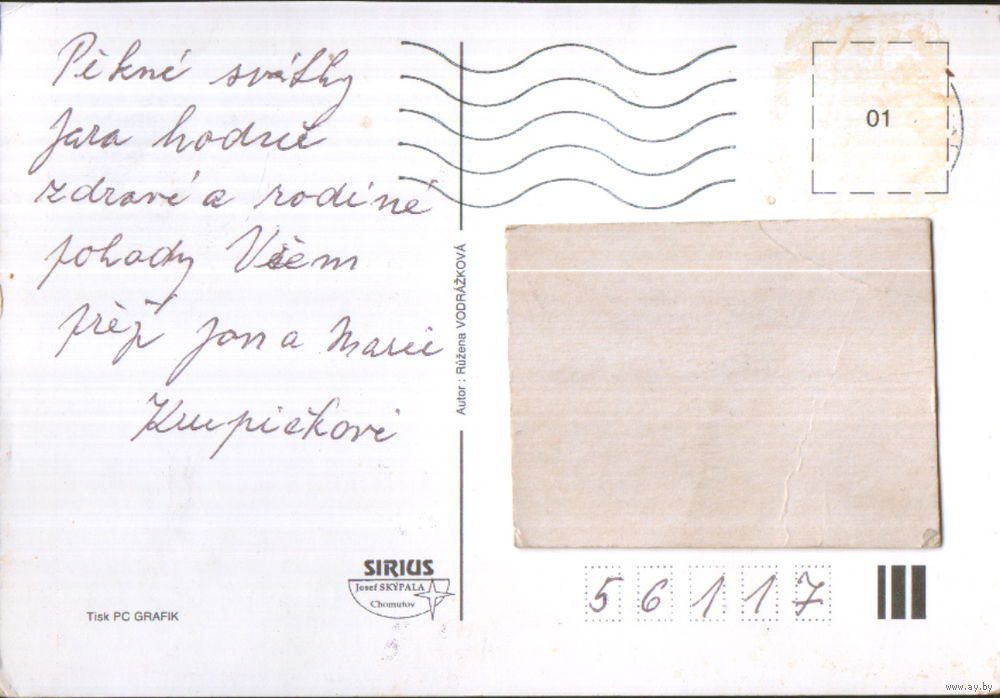 Pěkné svátky
jara hodně
zdraví a rodiné
pohody Všem
přejí Jan a Marie
Krupičkovi
Autor : Růžena VODRÁŽKOVÁ
01
SIRIUS
Josef SKÝPALA
Chomutov
Tisk PC GRAFIK
5 6 1 1 7
www.ay.by